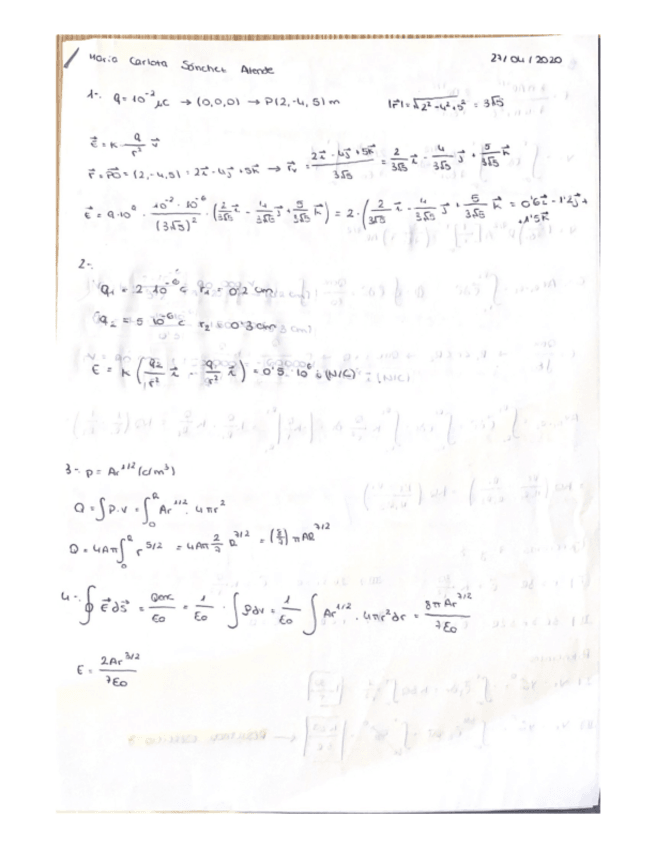 Maria Carlota Sánchez Alende 27/04/2020
1-. q = 10⁻² μC → (0,0,0) → P(2,-4,5) m |r⃗| = √2²-4²+5² = 3√5
E⃗ = K · q/r² v⃗
r⃗ = P⃗O = (2,-4,5) = 2i⃗ - 4j⃗ + 5k⃗ → r⃗v = 2i⃗ - 4j⃗ + 5k⃗/3√5 = 2/3√5 i⃗ - 4/3√5 j⃗ + 5/3√5 k⃗
E⃗ = 9·10⁹ · 10⁻² · 10⁻⁶/(3√5)² · (2/3√5 i⃗ - 4/3√5 j⃗ + 5/3√5 k⃗) = 2 · (2/3√5 i⃗ - 4/3√5 j⃗ + 5/3√5 k⃗) = 0'6i⃗ - 1'2j⃗ +
+1'5k⃗
2-.
q₁ = 2 10⁻⁶ C r₁ = 0'2 cm
q₂ = 5 10⁻⁶ C r₂ = 0'3 cm
E = K (q₂/r² i⃗ - q₁/r² i⃗) = 0'5 · 10⁶ i (N/C)
3-. ρ = Ar^1/2 (C/m³)
Q = ∫ρ·v = ∫₀ᴿ Ar^1/2 · 4πr²
Q = 4Aπ ∫₀ᴿ r^5/2 = 4Aπ 2/7 R^7/2 = (8/7) πAR^7/2
4-. ∮ E⃗ ds⃗ = Qenc/ε₀ = 1/ε₀ · ∫ρdv = 1/ε₀ ∫ Ar^1/2 · 4πr² dr = 8πAr^7/2/7ε₀
E = 2Ar^3/2/7ε₀